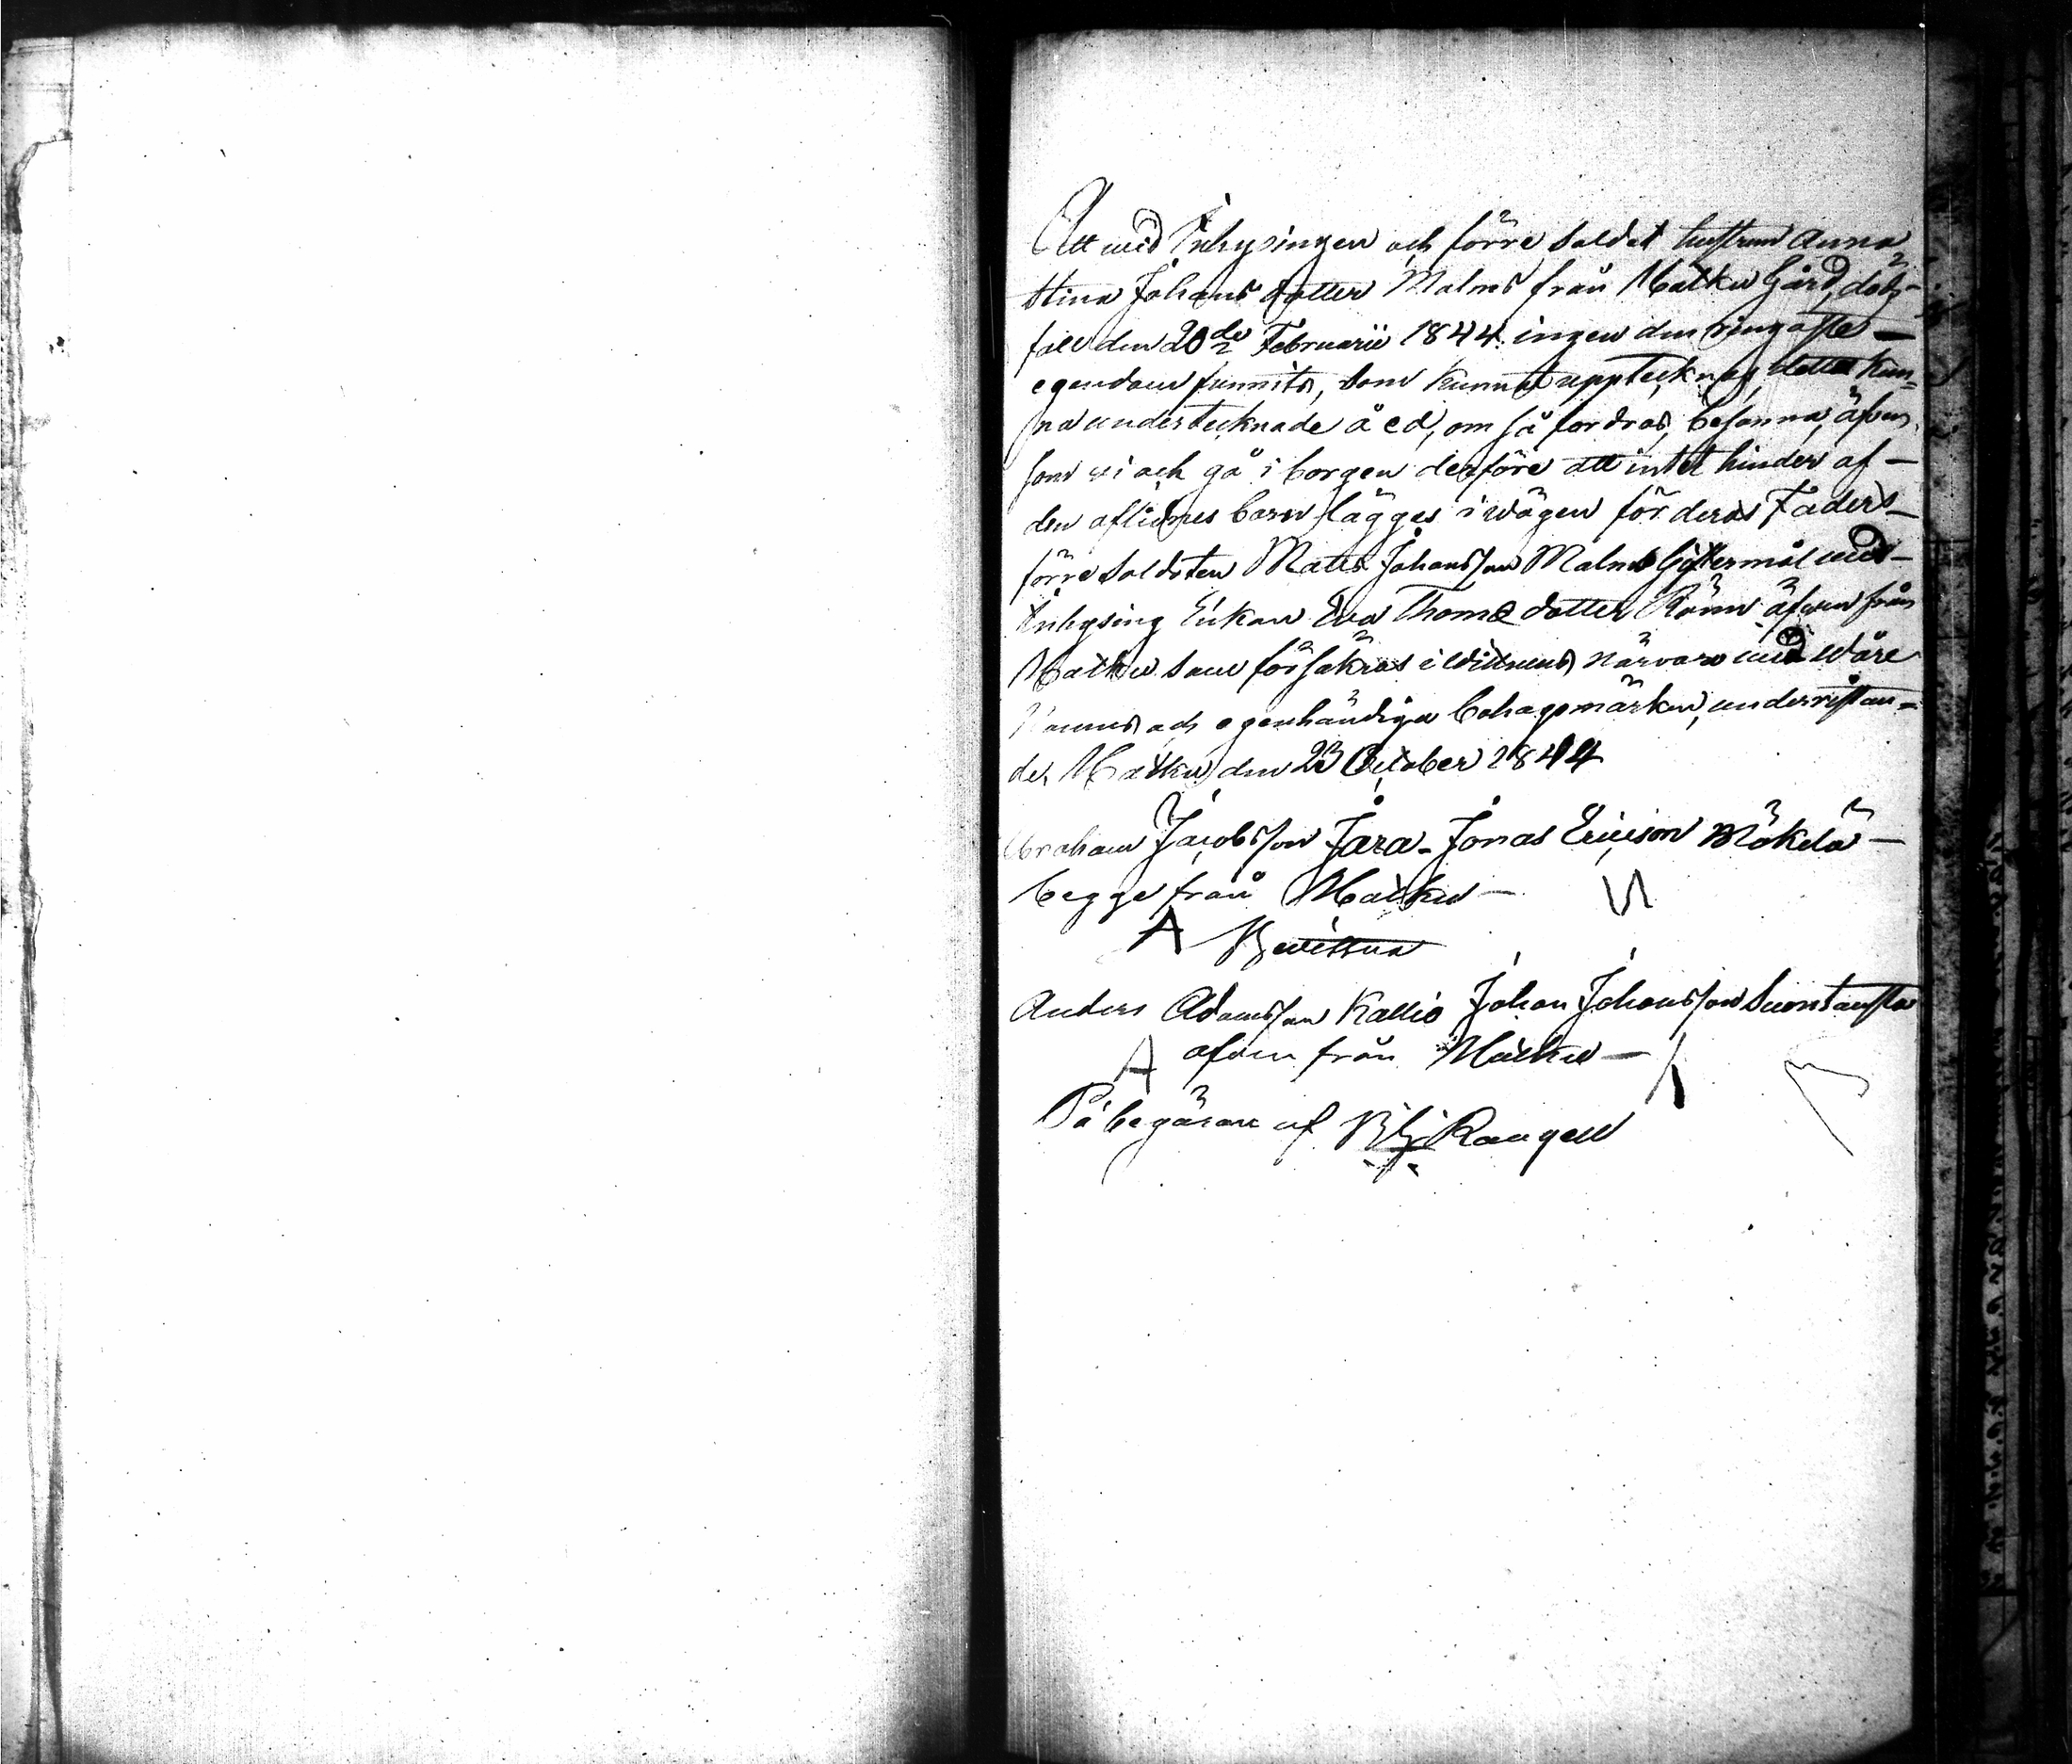 Att wid Inhysingen och förre Soldat hustrun Anna
Stina Johans dotter Malms från Matku Gård, döds-
fall den 20de Februarii 1844. ingen den ringaste –
egendom funnits, som kunnat upptecknas, detta kun-
na undertecknade å ed, om så fordras, besanna, äfven
som vi och gå i borgen derföre att intet hinder af –
den aflidnes barn lägges i wägen för deras Faders –
förre Soldaten Matts Johansson Malms Giftermål med –
Inhysing Enkan Eva Thomædotter Rönn äfven från
Matku som försäkras i Wittnens närvaro med Wåre
Namns och egenhändiga bohagsmärken, underristan-
de, Matku den 23 October 1844
Abraham Jacobsson Jara – Jonas Ericson Mäkelä –
begge från Matku –
A Bewittna
Anders Adamsson Kallio Johan Johansson Suontausta
A äfven från Matku –
På begäran af Rangell